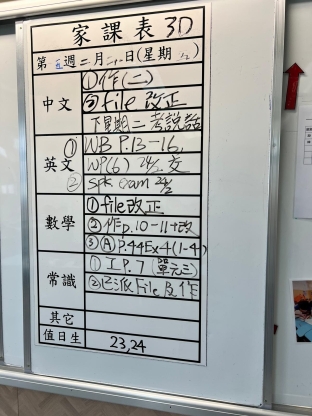 家課表 3D
第五週二月二十日(星期五)
中文
①作(二)
②file 改正
下星期二考說話
英文
① WB P.13-16,
WP(6) 24/2 交
② Spk exam 24/2
數學
①file改正
②作p.10-11+改
③(A)P.44Ex4(1-4)
常識
①工P.7(單元三)
②已派File及作
其它
值日生
23,24